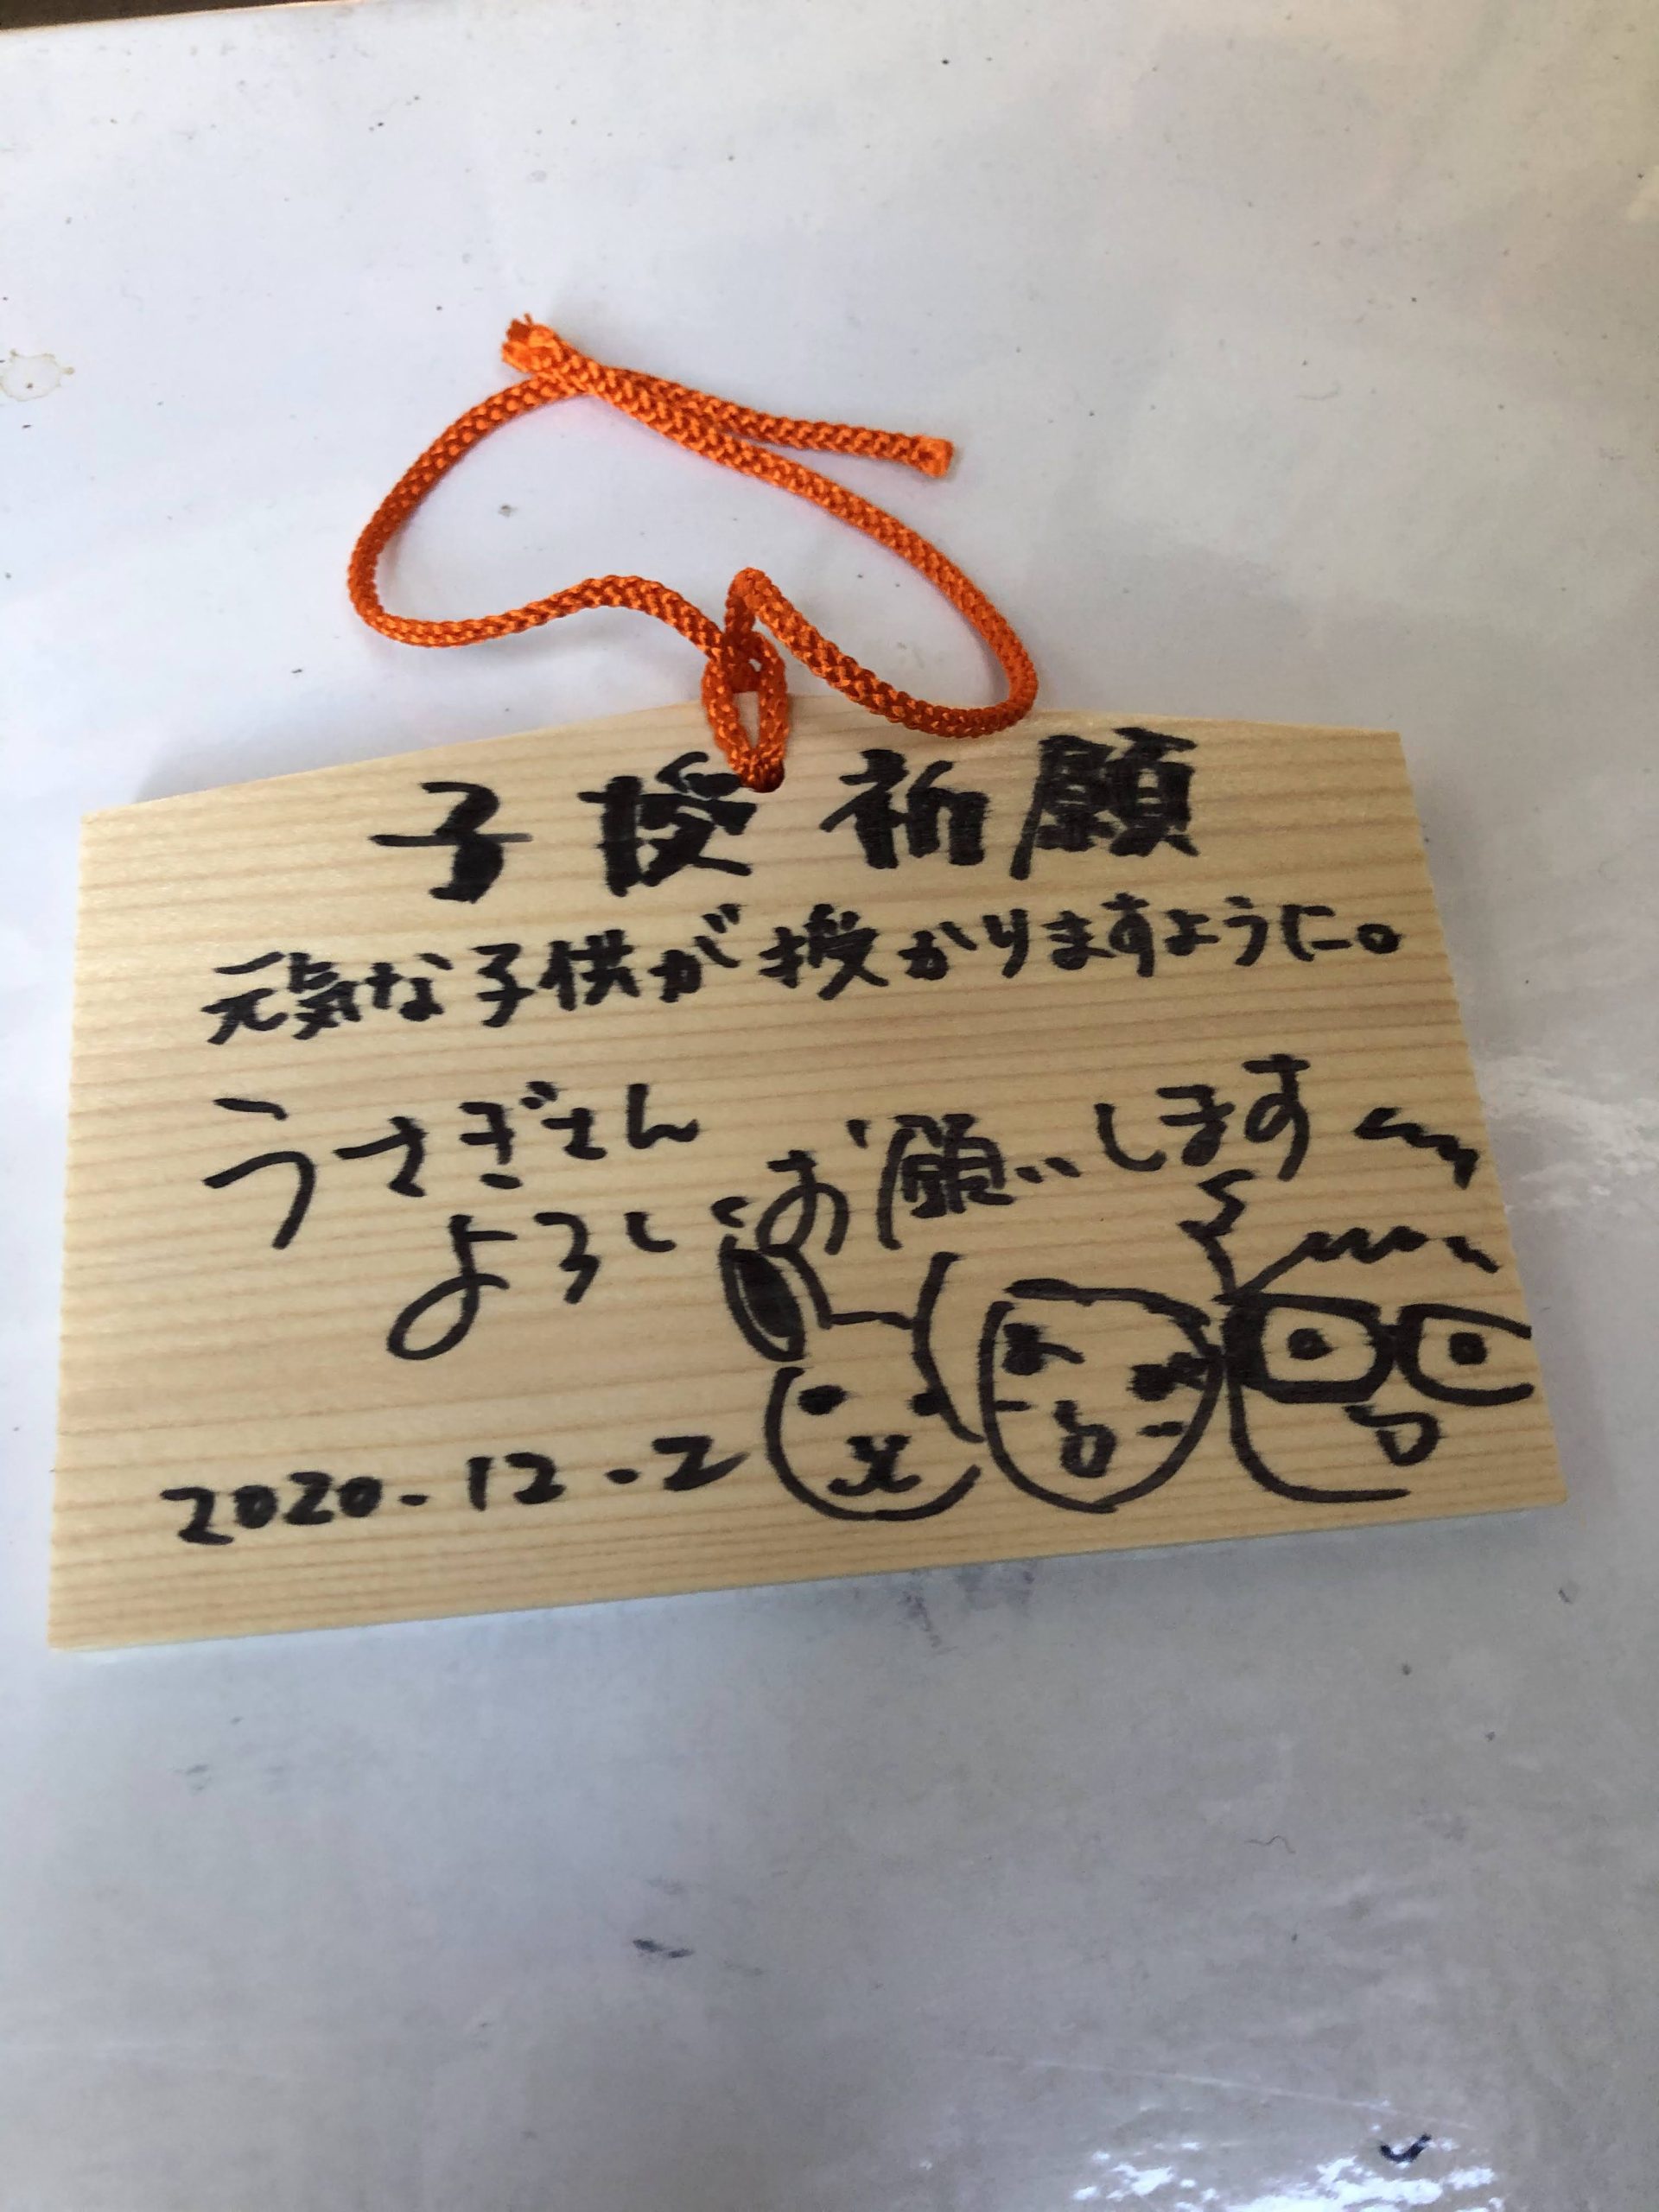 子授祈願
元気な子供が授かりますように。
うさぎさん
よろしくお願いします
2020.12.2